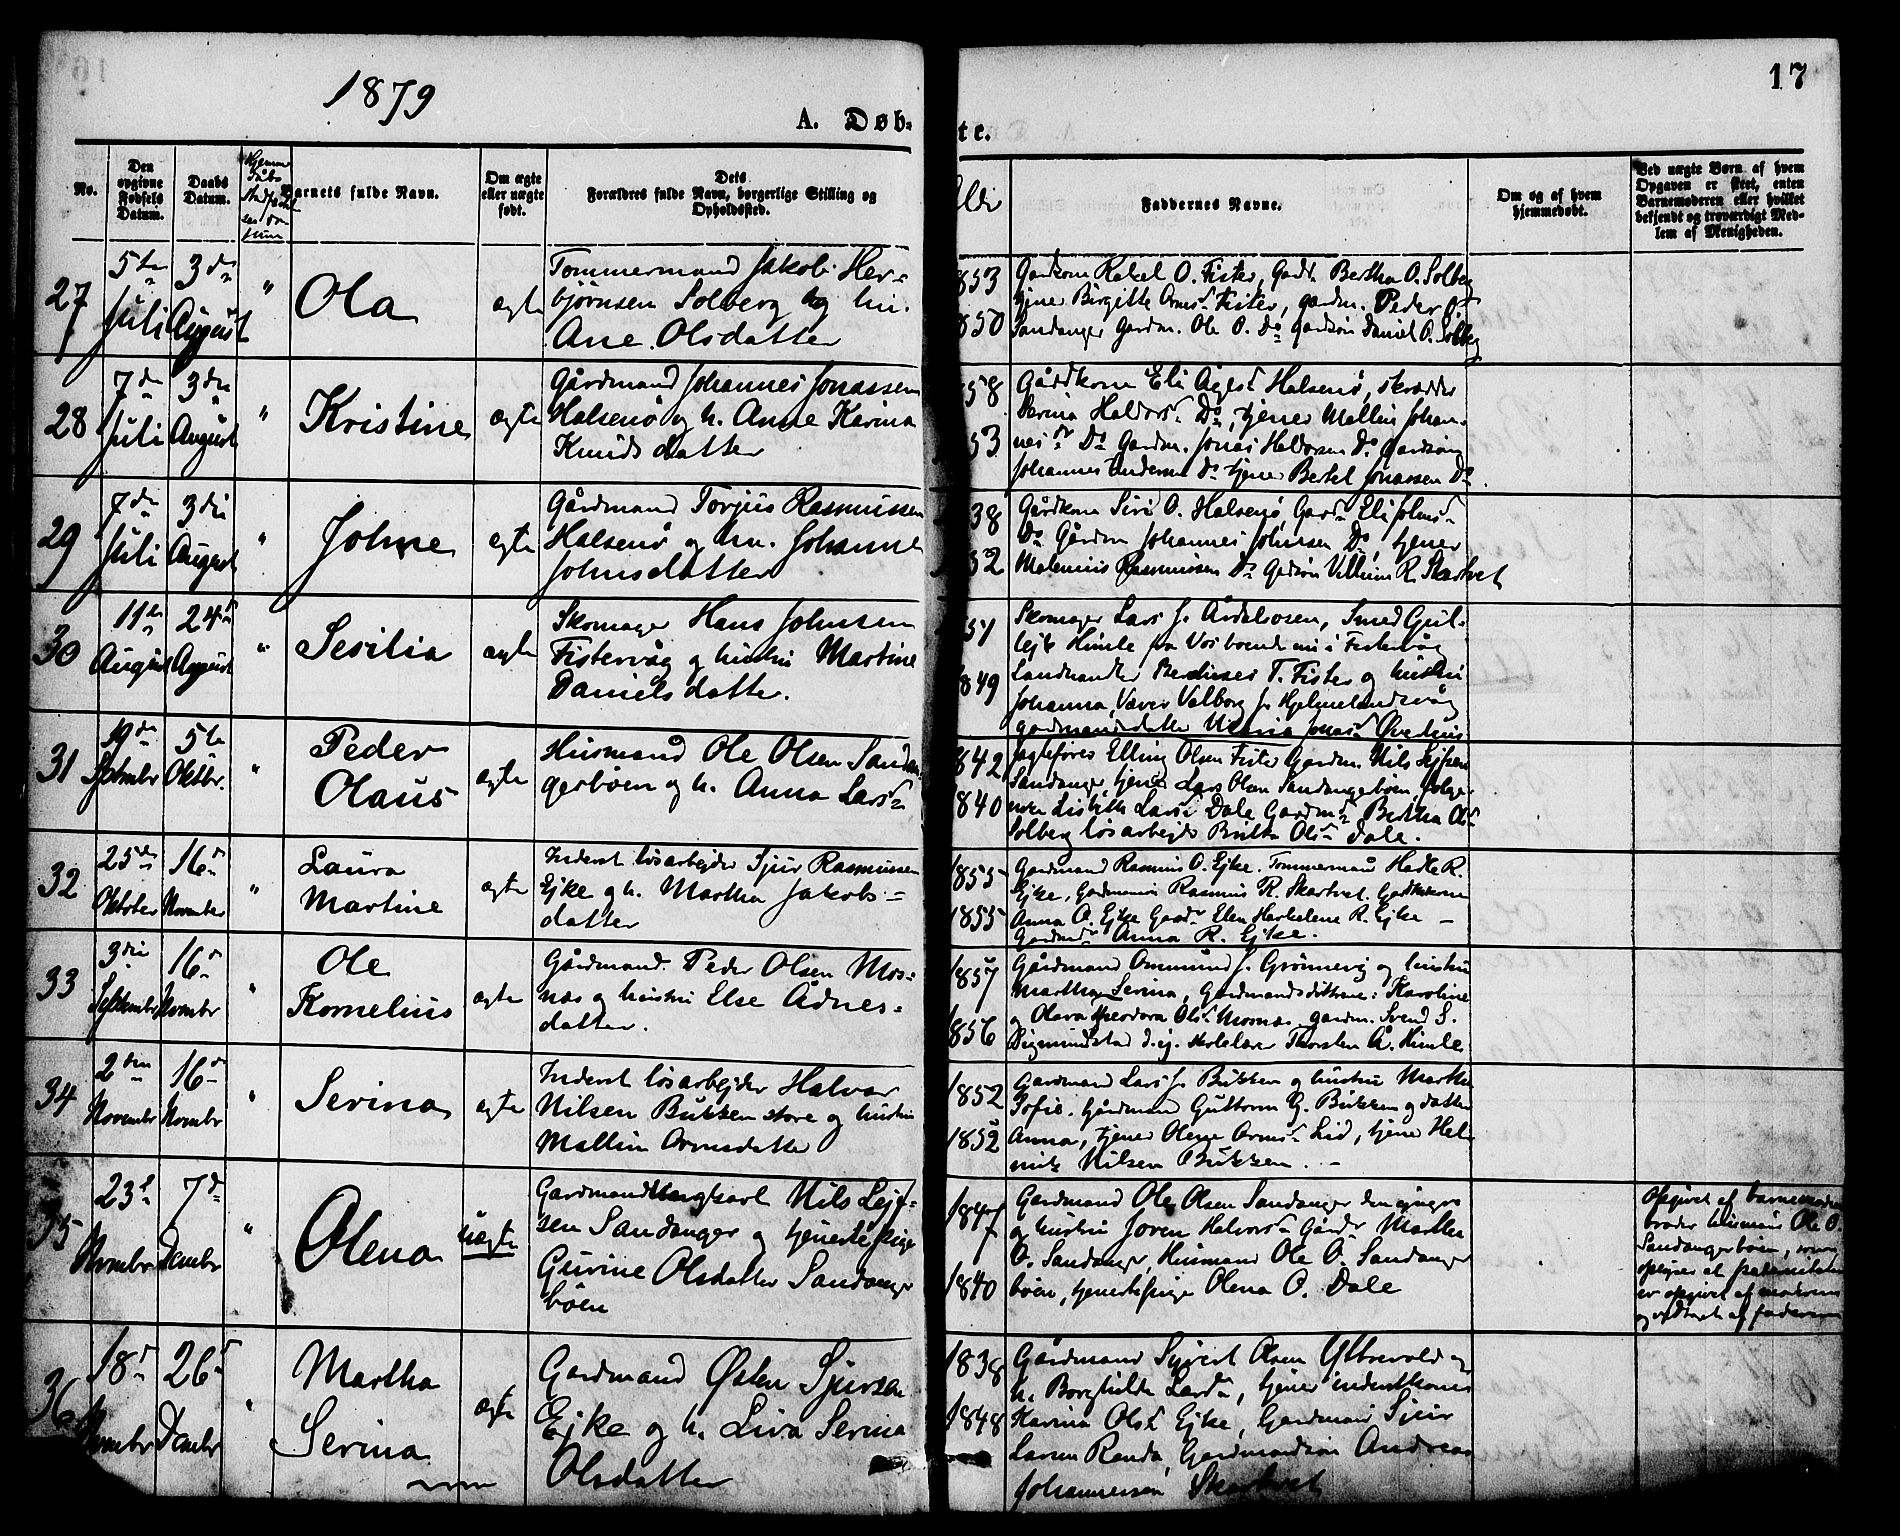 1879
17
A. Døb-
te.
No.
Den opgivne Fødsels Datum.
Daabs Datum.
Barnets fulde Navn.
Om ægte eller uægte født.
Dets
Forældres fulde Navn, borgerlige Stilling og
Opholdssted.
Faddernes Navne.
Om og af hvem
hjemmedøbt.
Ved uægte Børn af hvem
Opgaven er skeet, enten
Barnemoderen eller hvilket
bekjendt og troværdigt Med-
lem af Menigheden.
27
5te Juli
3die August
"
Ola
ægte
Tømmermand Jakob Her-
bjørnsen Solberg og hu.
Ane Olsdatter
853
850
Gardkone Rakel O. Fister, Gadt. Bertha O. Solberg
tjener Birgitte Ormsd. Fister, gardm. Peder O.
Sandanger Gardm. Ole O. Do gardsøn Daniel O. Solberg
28
7de Juli
3die August
"
Kristine
ægte
Gårdmand Johannes Jonassen
Halsenø og h. Anne Karina
Knudsdatter
58
53
Gårdkone Eli Aagesd. Halsenø, skrædder
Serina Haldorsd. Do, tjener Mallin Johan-
nesdr. Do Gardm. Jonas Haldorsen Do Gardsøn
Johannes Andersen Do tjener Bertel Jonassen Do.
29
7de Juli
3die August
"
Johne
ægte
Gårdmand Torjus Rasmussen
Halsenø og hu. Johanne
Johnsdatter
38
52
Gårdkone Siri O. Halsenø, Gard. Eli Johnsd.
Do Gårdm Johannes Johnsen Do, tjener
Malenius Rasmussen Do Gardsøn Villum R. Skartvet
30
11te August
24d August
"
Sesilia
ægte
Skomager Hans Johnsen
Fistervåg og hustru Martine
Danielsdatter.
57
849
Skomager Lars J. Årdalsosen, Smed Gul-
lejk Himle fra Vos boende nu i Fistervåg
Landhandler Berduses T. Fister og hustru
Johanna, Væver Valborg J. Hjelmelandsvåg
gardmandsdatter Maria Jonasd.
31
19de Septembr
5te Oktbr.
"
Peder
Olaus
ægte
Husmand Ole Olsen Sandan-
gerbøen og h. Anna Larsd.
842
840
Jagtefører Elling Olsen Fister Gardm. Nils Lejfsen
Sandanger, tjener Lars Olsen Sandangerbøen,
Lisbeth Larsd. Dale Gardmd. Bertha Olsd.
Solberg løsarbejder Britta Olsd. Dale.
32
25de Oktober
16d November
"
Laura
Martine
ægte
Inderst løsarbejder Sjur Rasmussen
Ejke og h. Martha Jakobs-
datter
1855
1855
Gardmand Rasmus O. Ejke. Tømmermand Hadle R.
Ejke, Gardmand Rasmus R. Skartvet. Gardkone
Anna O. Ejke Gardd. Elen Harkelene R. Ejke
Gardmd. Anna R. Ejke.
33
3die September
16d Novembr
"
Ole
Kornelius
ægte
Gårdmand. Peder Olsen Mos-
næs og hustru Else Ådnes-
datter.
1857
1856
Gårdmand Ommund J. Grønnevig og hustru
Martha Serina, Gardmandsdøttrene: Karoline
og Olava Theodora Olsd. Mosnæs, gardm. Svend S.
Sigmundstad d.y. skolelærer Thorsten A. Himle
34
2den Novembr
16d Novembr
"
Serina
ægte
Inderst løsarbejder Halvar
Nilsen Bukken store og hustru
Mallin Ormsdatter
1852
1852
Gardmand Lars J. Bukken og hustru Martha
Sofie. Gårdmand Guttorm G. Bukken og datter
Anna, tjener Olene Ormsd. Lid, tjener Hel-
mik Nilsen Bukken.
35
23d Novmbr
7d Decmbr
"
Olena
uægte
Gardmand Ungkarl Nils Lejf-
sen Sandanger og tjenestepige
Gurine Olsdatter Sandanger
bøen
1847
1840
Gardmand Ole Olsen Sandanger den yngre
og hustru Joren Halvorsd. Gårdd. Martha
O. Sandanger, Husmand Ole O. Sandanger
bøen, tjenestepige Olena O. Dale
Opgivet af barnemoderens
broder husmand Ole O.
Sandangerbøen, som
oplyser at paterniteten
er opgivet af moderen
og vedtaget af faderen
36
18d Novmbr
26d Decmbr
"
Martha
Serina
ægte
Gardmand Østen Sjursen
Ejke og h. Liva Serina
Olsdatter
1838
1848
Gårdmand Sjvert Olsen Ytrevold og
h. Borghilda Larsd., tjener inderstkone
Karina Olsd. Ejke, Gardmand Sjur
Larsen Randa, Gardmandssøn Andreas
Johannessen Skartvet